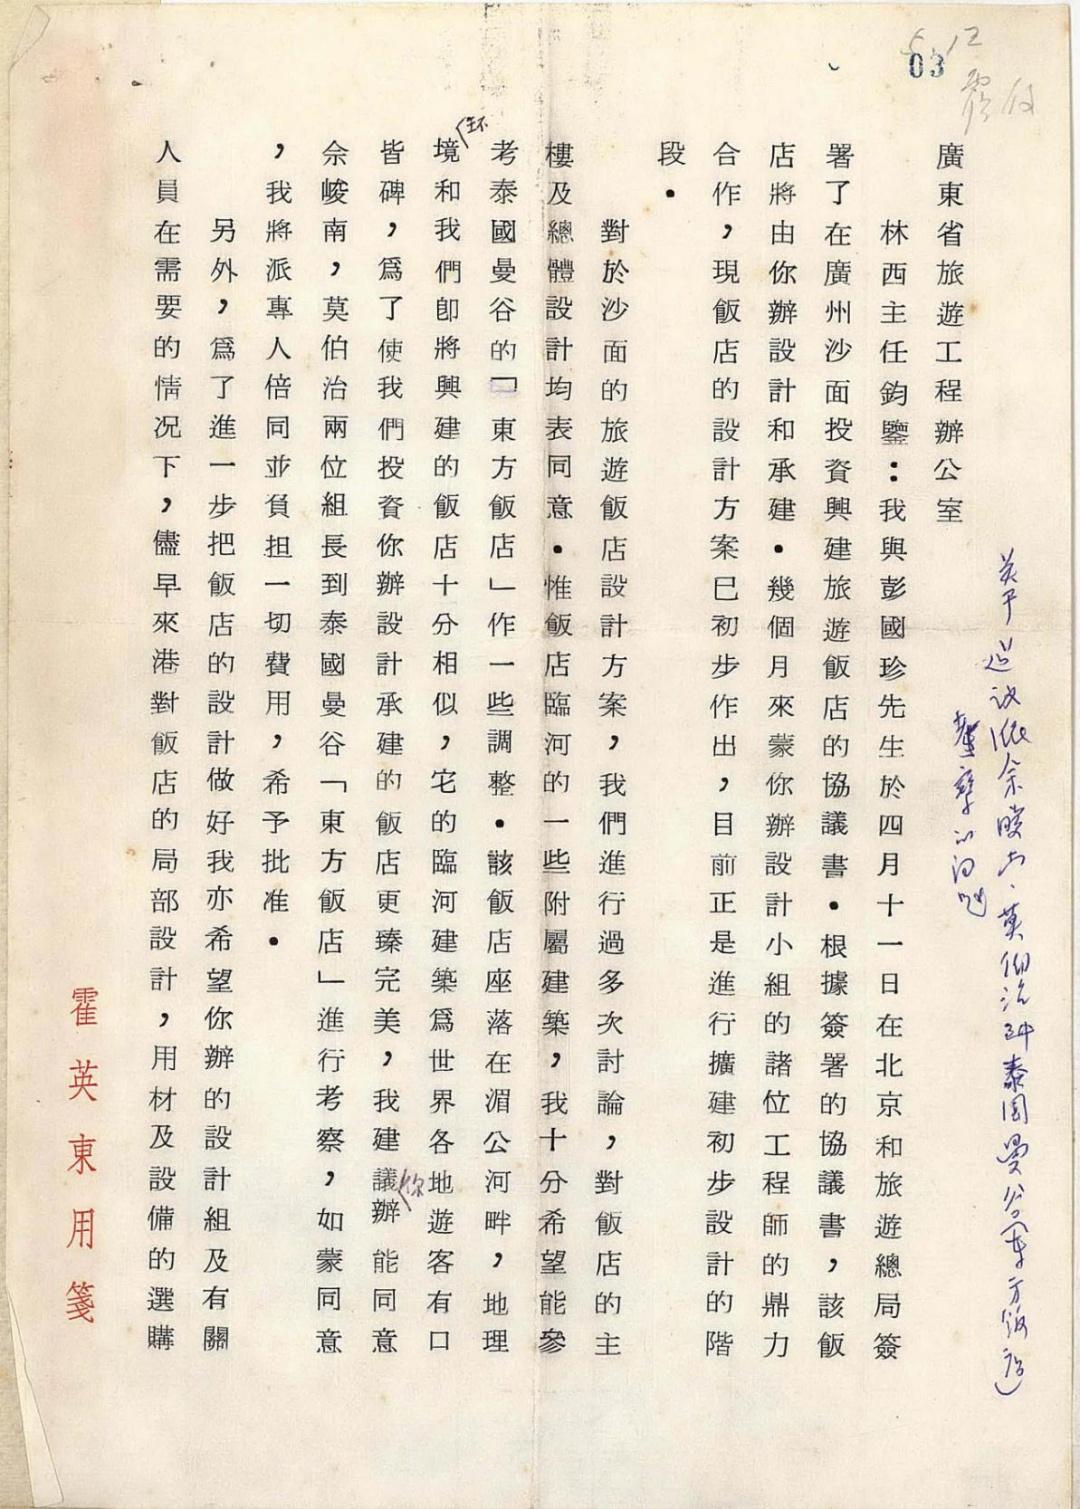 03
廣東省旅遊工程辦公室
林西主任鈞鑒:我與彭國珍先生於四月十一日在北京和旅遊總局簽
署了在廣州沙面投資興建旅遊飯店的協議書•根據簽署的協議書,該飯
店將由你辦設計和承建•幾個月來蒙你辦設計小組的諸位工程師的鼎力
合作,現飯店的設計方案已初步作出,目前正是進行擴建初步設計的階
段•
對於沙面的旅遊飯店設計方案,我們進行過多次討論,對飯店的主
樓及總體設計均表同意•惟飯店臨河的一些附屬建築,我十分希望能參
考泰國曼谷的「東方飯店」作一些調整•該飯店座落在湄公河畔,地理
环境和我們卽將興建的飯店十分相似,它的臨河建築爲世界各地遊客有口
皆碑,爲了使我們投資你辦設計承建的飯店更臻完美,我建議你辦能同意
佘峻南,莫伯治兩位組長到泰國曼谷「東方飯店」進行考察,如蒙同意
,我將派專人倍同並負担一切費用,希予批准•
另外,爲了進一步把飯店的設計做好我亦希望你辦的設計組及有關
人員在需要的情況下,儘早來港對飯店的局部設計,用材及設備的選購
霍英東用箋